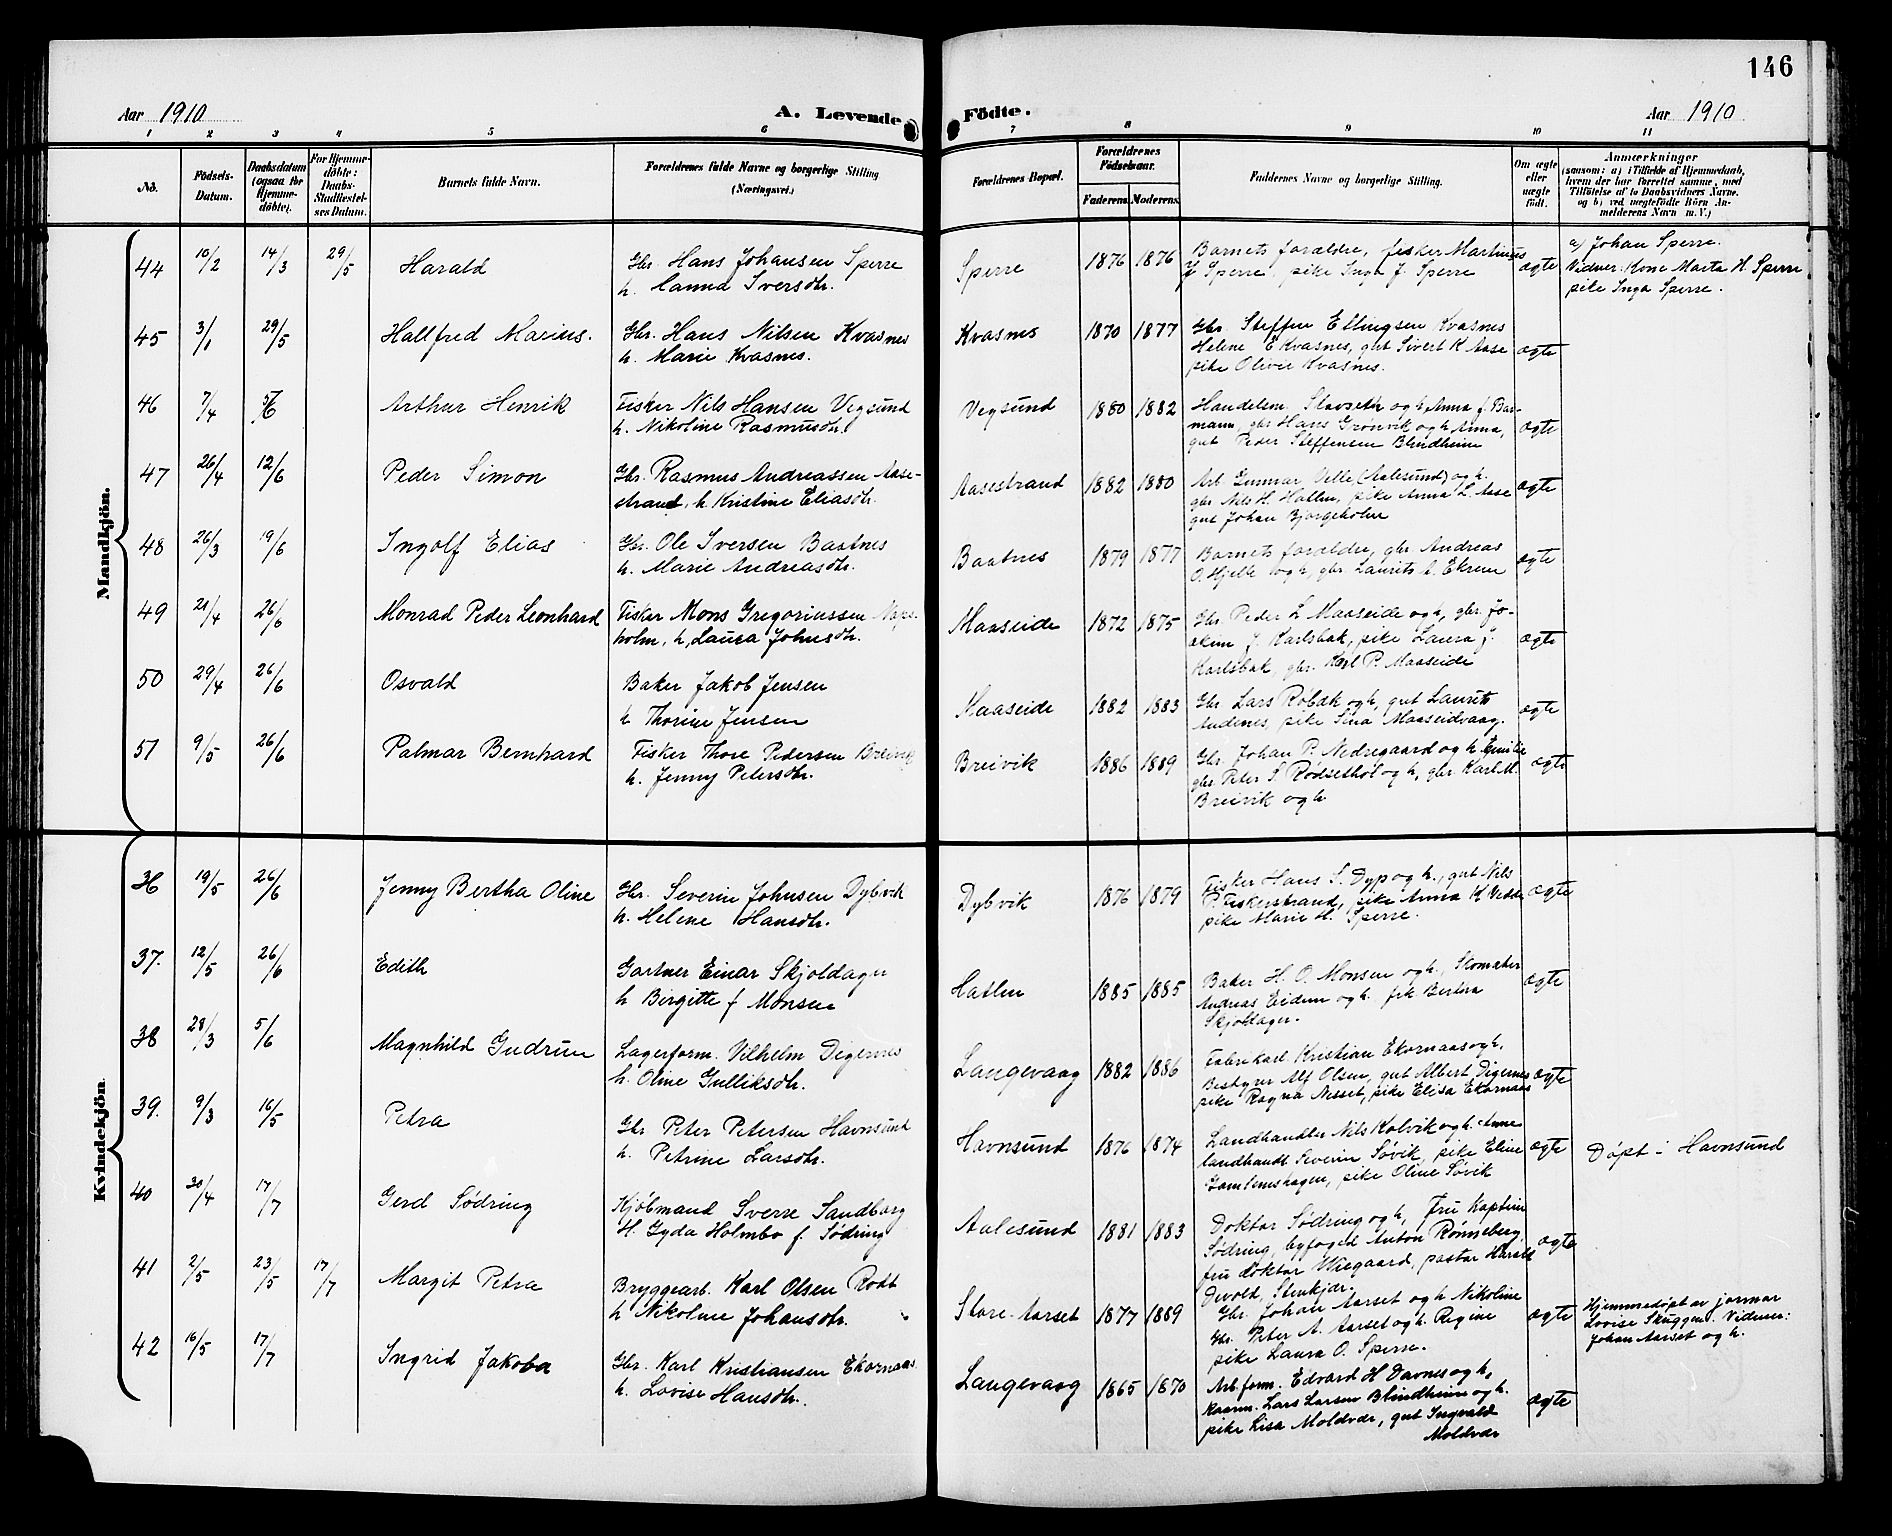 146
Aar 1910
A. Levende Födte.
Aar 1910
1 2 3 4 5 6 7 8 9 10 11
No.
Födsels-
Datum.
Daabsdatum
(ogsaa for
Hjemme-
döbte).
For Hjemme-
döbte:
Daabs-
Stadfæstel-
ses Datum.
Barnets fulde Navn.
Forældrenes fulde Navne og borgerlige Stilling
(Næringsvei.)
Forældrenes Bopæl.
Forældrenes
Födselsaar.
Faderens. Moderens.
Faddernes Navne og borgerlige Stilling.
Om ægte
eller
uægte
födt.
Anmærkninger
(saasom: a) i Tilfælde af Hjemmedaab,
hvem der har forrettet samme, med
Tilföielse af to Daabsvidners Navne,
og b) ved uægtefödte Börn An-
melderens Navn m. V.)
Mandkjön.
44 10/2 14/3 29/5 Harald
Gbr. Hans Johansen Sperre
h. Iversdtr.
Sperre 1876 1876
Barnets forældre, fisker Martinus
J. Sperre, pike Inga J. Sperre
ægte
a) Johan Sperre.
Vidner: Kone Marta H. Sperre
pike Inga Sperre.
45 3/1 29/5 Hallfred Marius.
Gbr. Hans Nilsen Kvasnes
h. Marie Kvasnes.
Kvasnes 1870 1877
Gbr Steffen Ellingsen Kvasnes
Helene E Kvasnes, gut Sivert K Aase
pike Olivie Kvasnes.
ægte
46 7/4 5/6 Arthur Henrik
Fisker Nils Hansen Vegsund
h. Nikoline Rasmusdtr.
Vegsund 1880 1882
Handelsm. Slavseth og h, Anna f. Bar-
mann, gbr Hans Grønvik og h Anna,
gut Peder Steffensen Blindheim
ægte
47 26/4 12/6 Peder Simon
Gbr. Rasmus Andreassen Aase-
strand, h. Kristine Eliasdtr.
Aasestrand 1882 1880
Arb Gunnar Velle (Aalesund) og h.
gbr Nils H. Hatlen, pike Anna L. Aase
gut Johan Bjørgeholm
ægte
48 26/3 19/6 Ingolf Elias
Gbr. Ole Iversen Baatnes
h. Marie Andreasdtr.
Baatnes 1879 1877
Barnets forældre, gbr. Andreas
O. Hjelle og h, gbr. Laurits A. Ekrem
ægte
49 21/4 26/6 Monrad Peder Leonhard
Fisker Mons Gregoriussen
holm, h, Laura Johnsdtr.
Maaseide 1872 1875
Gbr Peder L Maaseide og h, gbr. Jo-
akim J. Karlsbak, pike Laura J.
Karlsbak, gbr. Karl P. Maaseide
ægte
50 29/4 26/6 Osvald
Baker Jakob Jensen
h Thorine Jensen
Maaseide 1882 1883
Gbr Lars Robak og h, gut Laurits
Andenes, pike Sina Maaseidvaag.
ægte
51 9/5 26/6 Palmar Bernhard
Fisker Thore Pedersen Breivik
h. Jenny Petersdtr.
Breivik 1886 1889
Gbr. Johan P. Nedregaard og h Emilie
gbr Peter S. Rødsethøl og h, gbr. Karl M.
Breivik og h
ægte
Kvindekjön.
36 19/5 26/6 Jenny Bertha Oline
Gbr. Severin Johnsen Dybvik
h. Helene Hansdtr.
Dybvik 1876 1879
Fisker Hans S. Dyp og h., gut Nils
P. Fiskerstrand, pike Anna K Vedde
pike Marie H. Sperre.
ægte
37. 12/5 26/6 Edith
Gartner Einar Skjoldager
h Birgitte f Monsen
Hatlen 1885 1885
Baker H. O. Monsen og h., Skomaker
Andreas Eidem og h. frk Bertha
Skjoldager.
ægte
38 28/3 5/6 Magnhild Gudrun
Lagerform. Vilhelm Digernes
h. Oline Gulliksdtr.
Langevaag 1882 1886
Fabrikarb Kristian Ekornaas og h.
Bestyrer Alf Olsen, gut Albert Digernes
pike Ragna Nesset, pike Elisa Ekornaas
ægte
39. 9/3 16/5 Petra
Gbr Peter Petersen Havnsund
h. Petrine Larsdtr.
Havnsund 1876 1874
Landhandler Nils Kolvik og h. Anne
landhandl Severin Søvik, pike Eline
Gamlemshagen, pike Oline Søvik
ægte
Døpt i Havnsund
40 30/4 17/7 Gerd Södring
Kjöbmand Sverre Sandborg
H. Gyda Holmbo f. Södring
Aalesund 1881 1883
Doktor Södring og h, Fru Kaptein
Södring, byfoged Anton Rønneberg,
fru doktor Wiegaard, pastor Harald
Devold, Stenkjær.
ægte
41 2/5 23/5 17/7 Margit Petra
Bryggearb. Karl Olsen Rodt
h Nikoline Johansdtr.
Store-Aarset 1877 1889
Gbr. Johan Aarset og h Nikoline
Gbr. Peter A. Aarset og h. Regine
pike Laura O. Sperre.
ægte
Hjemmedøpt av jormor
Lovise Skuggen. Vidner:
Johan Aarset og h.
42 16/5 17/7 Ingrid Jakoba
Gbr. Karl Kristiansen Ekornaas
h. Lovise Hansdtr.
Langevaag 1865 1870
Arb.form. Edvard H Davnes og h,
kaarm. Lars Larsen Blindheim og h.
pike Lisa Moldvær, gut Ingvald
Moldvær
ægte